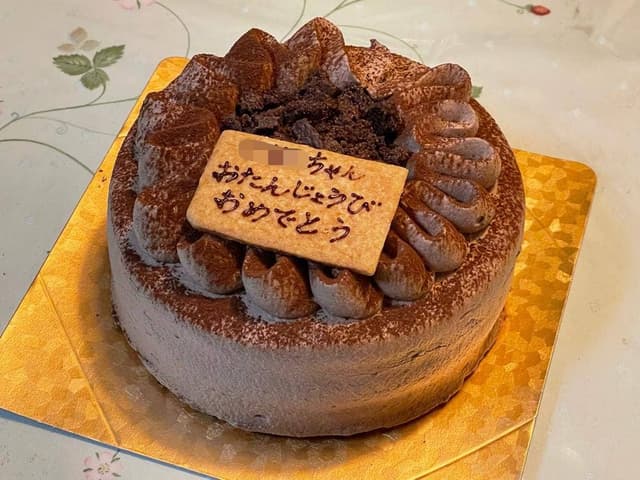 ちゃん
おたんじょうび
おめでとう